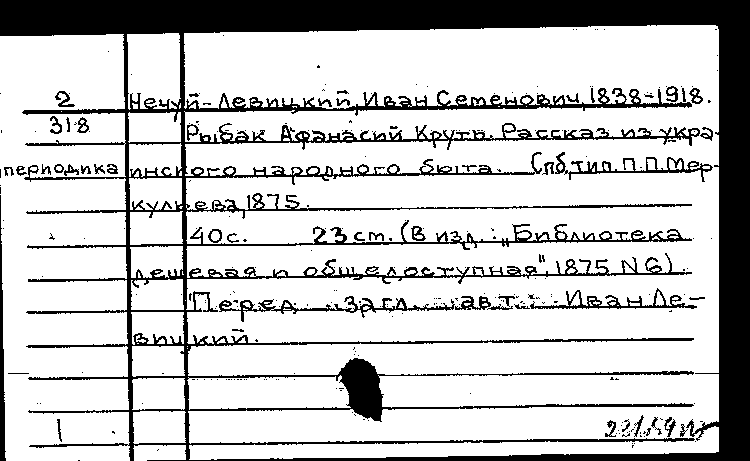 2 Нечуй-Левицкий, Иван Семенович, 1838-1918.
318 Рыбак Афанасий Круть. Рассказ из укра-
периодика инского народного быта. Спб, тип. П.П. Мер-
кульева, 1875.
40 с. 23 cm. (В изд.: „Библиотека
дешевая и общедоступная", 1875 N 6)
Перед загл. авт.: Иван Ле-
вицкий.
1